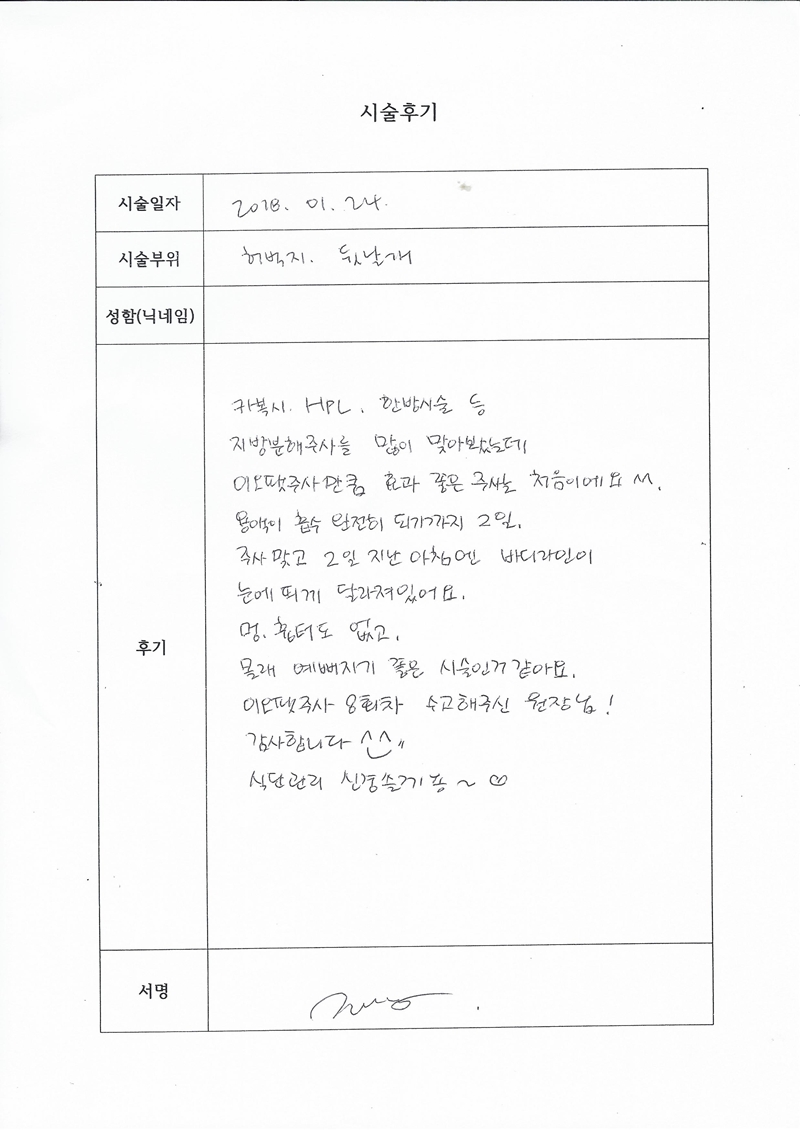 시술후기
시술일자 2018. 01. 24.
시술부위 허벅지. 뒷날개
성함(닉네임)
후기
카복시. HPL. 한방시술 등
지방분해주사를 많이 맞아봤는데
이오땟주사만큼 효과 좋은 주사는 처음이에요 ^^.
용액이 흡수 완전히 되기까지 2일.
주사 맞고 2일 지난 아침엔 바디라인이
눈에 띄게 달라져있어요.
멍. 흉터도 없고.
몰래 예뻐지기 좋은 시술인거 같아요.
이오땟주사 8회차 수고해주신 원장님!
감사합니다 ^^
식단관리 신경쓸게용 ~ ♡
서명